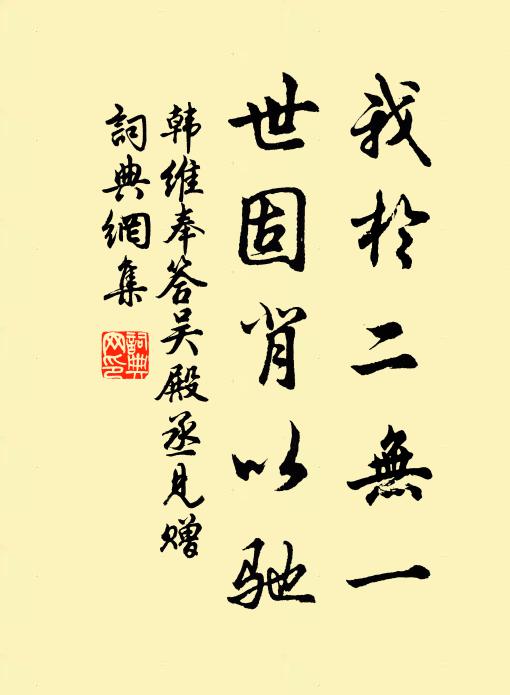 我於二無一
世固背以馳
韩维奉答吴殿丞见赠
詞典網集
詞典網印